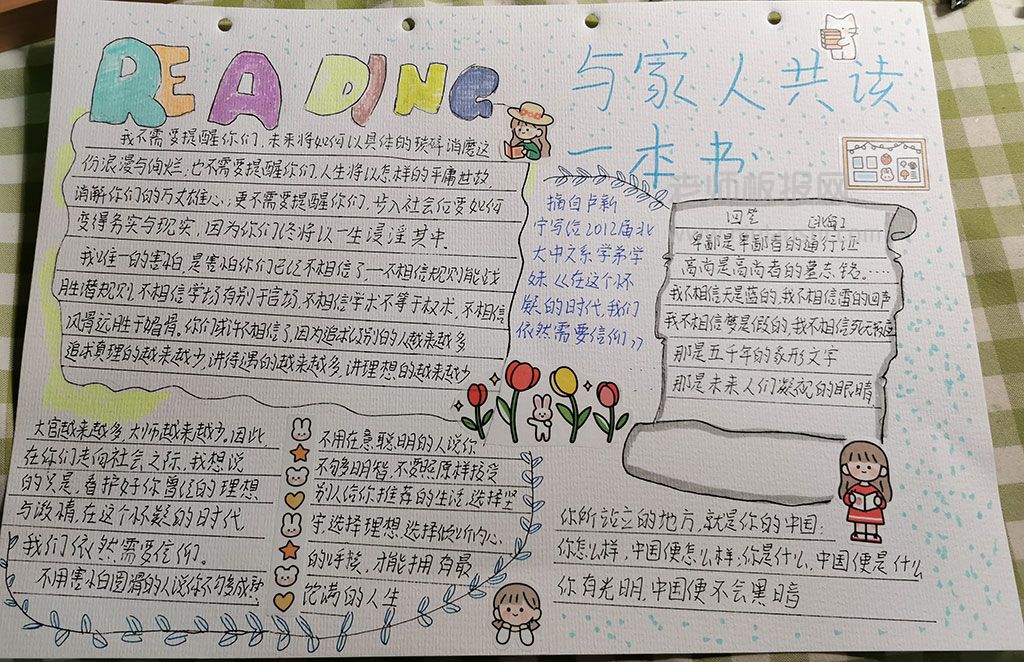 READING
与家人共读
一本书
我不需要提醒你们,未来将如何以具体的琐碎消磨这
份浪漫与绚烂,也不需要提醒你们,人生将以怎样的平庸世故,
消解你们的万丈雄心,更不需要提醒你们,步入社会后要如何
变得务实与现实,因为你们终将以一生浸淫其中.
我唯一的害怕,是害怕你们已经不相信了—不相信规则能战
胜潜规则,不相信学场有别于官场,不相信学术不等于权术,不相信
风骨远胜于媚骨,你们或许不相信了,因为追求级别的人越来越多
追求真理的越来越少,讲待遇的越来越多,讲理想的越来越少
摘自卢新
宁写给2012届北
大中文系学弟学
妹《在这个怀
疑的时代,我们
依然需要信仰》
回答
[北岛]
卑鄙是卑鄙者的通行证
高尚是高尚者的墓志铭.....
我不相信天是蓝的,我不相信雷的回声
我不相信梦是假的,我不相信死无报应
那是五千年的象形文字
那是未来人们凝视的眼睛
大官越来越多,大师越来越少。因此,
在你们走向社会之际,我想说
的只是,看护好你曾经的理想
与激情,在这个怀疑的时代,
我们依然需要信仰。
不用害怕圆滑的人说你不够多成熟,
不用在意聪明的人说你
不够多明智,不要照原样接受
别人给你推荐的生活,选择坚
守,选择理想,选择倾听内心
的呼唤,才能拥有最
饱满的人生
你所站立的地方,就是你的中国;
你怎么样,中国便怎么样,你是什么,中国便是什么
你有光明,中国便不会黑暗
老师板报网